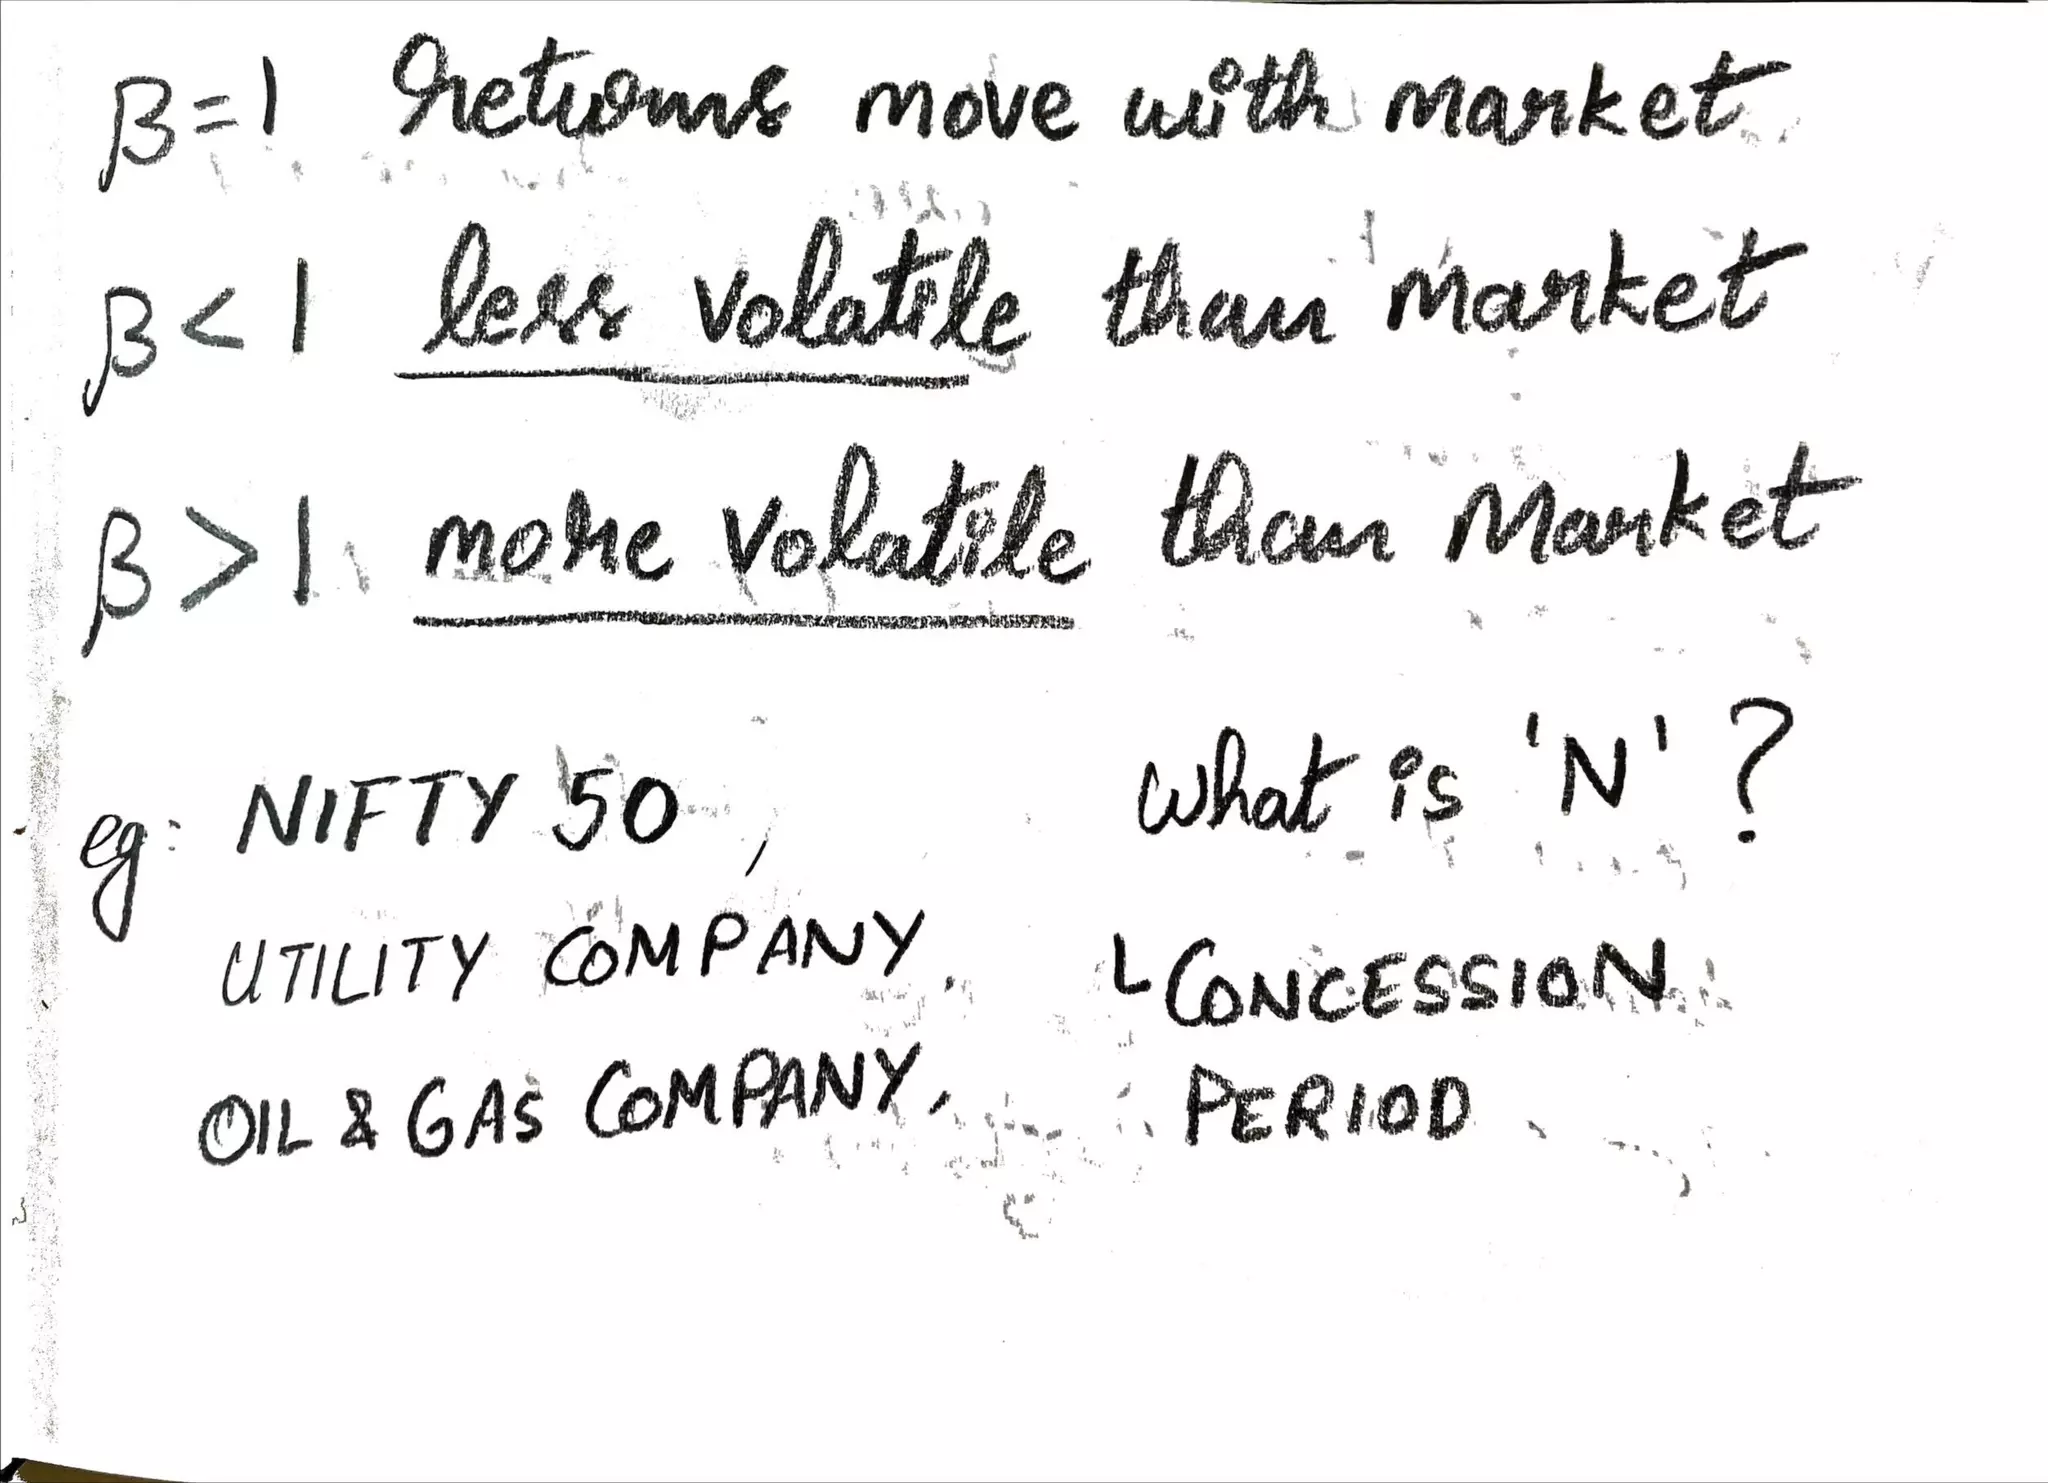 β=1 returns move with market
β<1 less volatile than market
β>1 more volatile than Market
eg: NIFTY 50,
UTILITY COMPANY
OIL & GAS COMPANY,
What is 'N'?
└CONCESSION
PERIOD